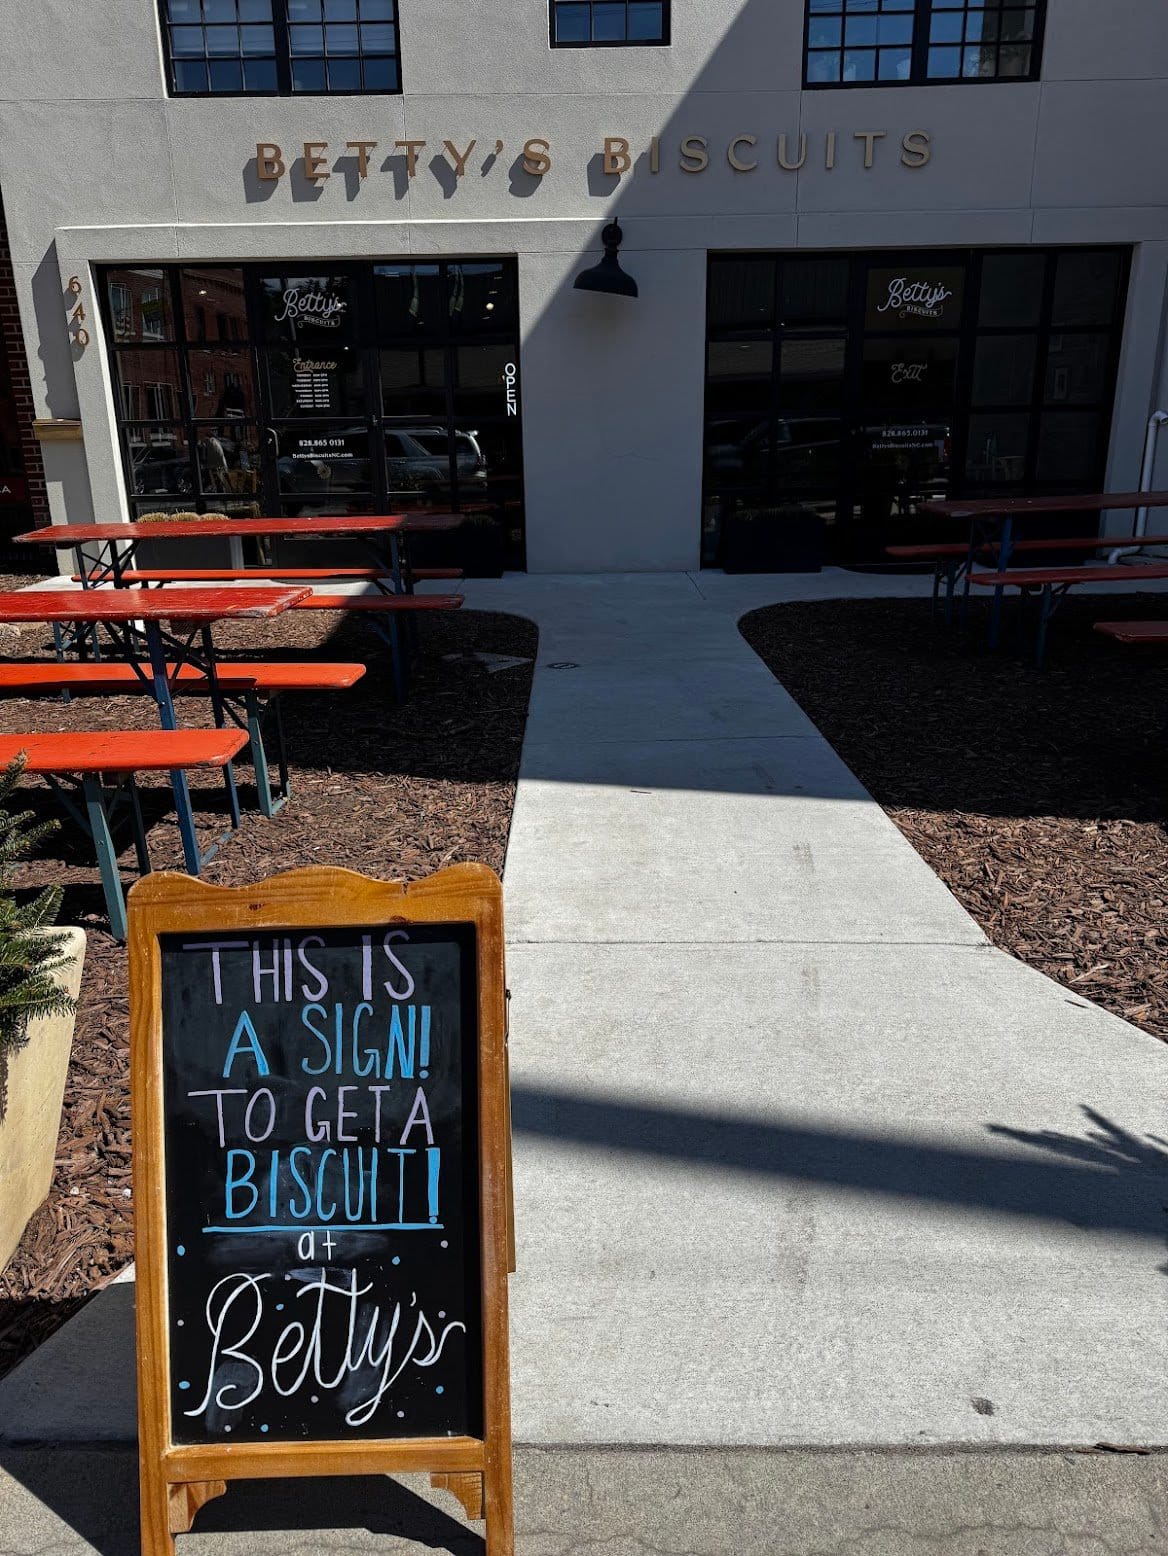 BETTY'S BISCUITS
640
Betty's
BISCUITS
Entrance
828.865.0131
BettysBiscuitsNC.com
OPEN
Betty's
BISCUITS
Exit
828.865.0131
BettysBiscuitsNC.com
THIS IS
A SIGN!
TO GET A
BISCUIT!
at
Betty's